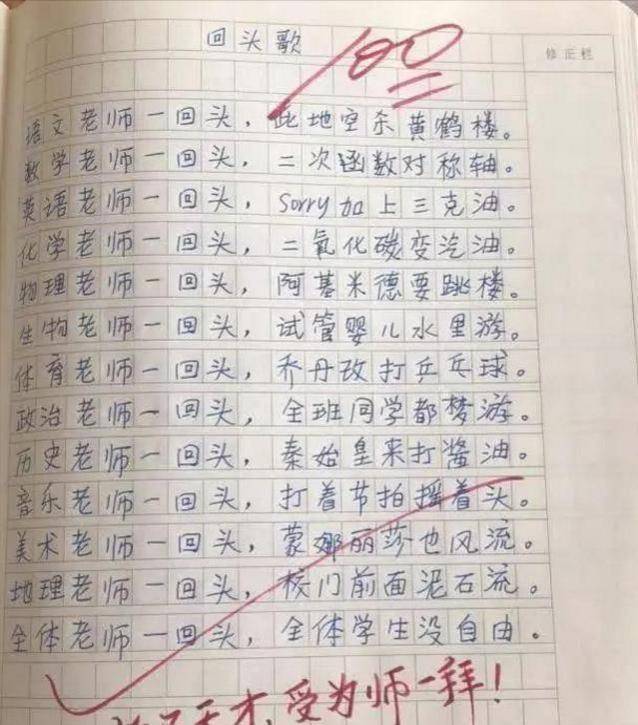 回头歌
100
修正栏
语文老师一回头，此地空余黄鹤楼。
数学老师一回头，二次函数对称轴。
英语老师一回头，sorry加上三克油。
化学老师一回头，二氧化碳变汽油。
物理老师一回头，阿基米德要跳楼。
生物老师一回头，试管婴儿水里游。
体育老师一回头，乔丹改打乒乓球。
政治老师一回头，全班同学都梦游。
历史老师一回头，秦始皇来打酱油。
音乐老师一回头，打着节拍摇着头。
美术老师一回头，蒙娜丽莎也风流。
地理老师一回头，校门前面泥石流。
全体老师一回头，全体学生没自由。
天才，受为师一拜！